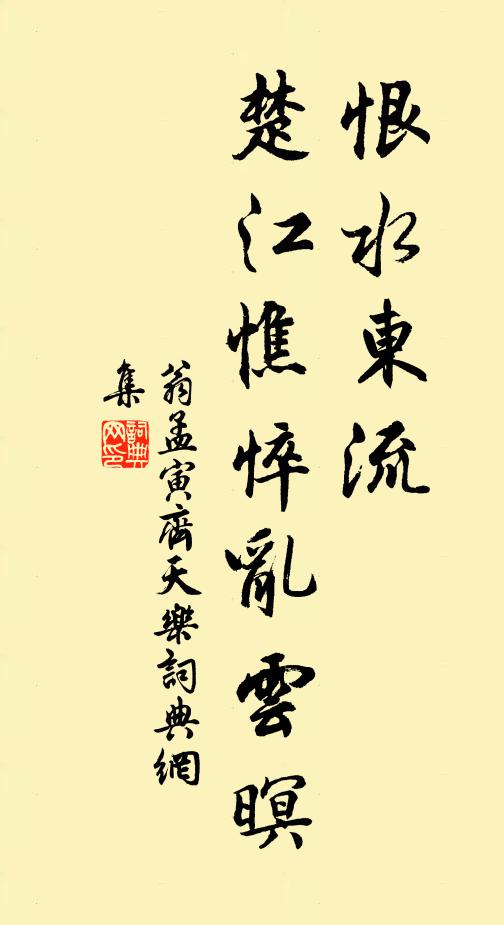 恨水東流
楚江憔悴亂雲暝
翁孟寅齊天樂詞典網
集
詞典
网印